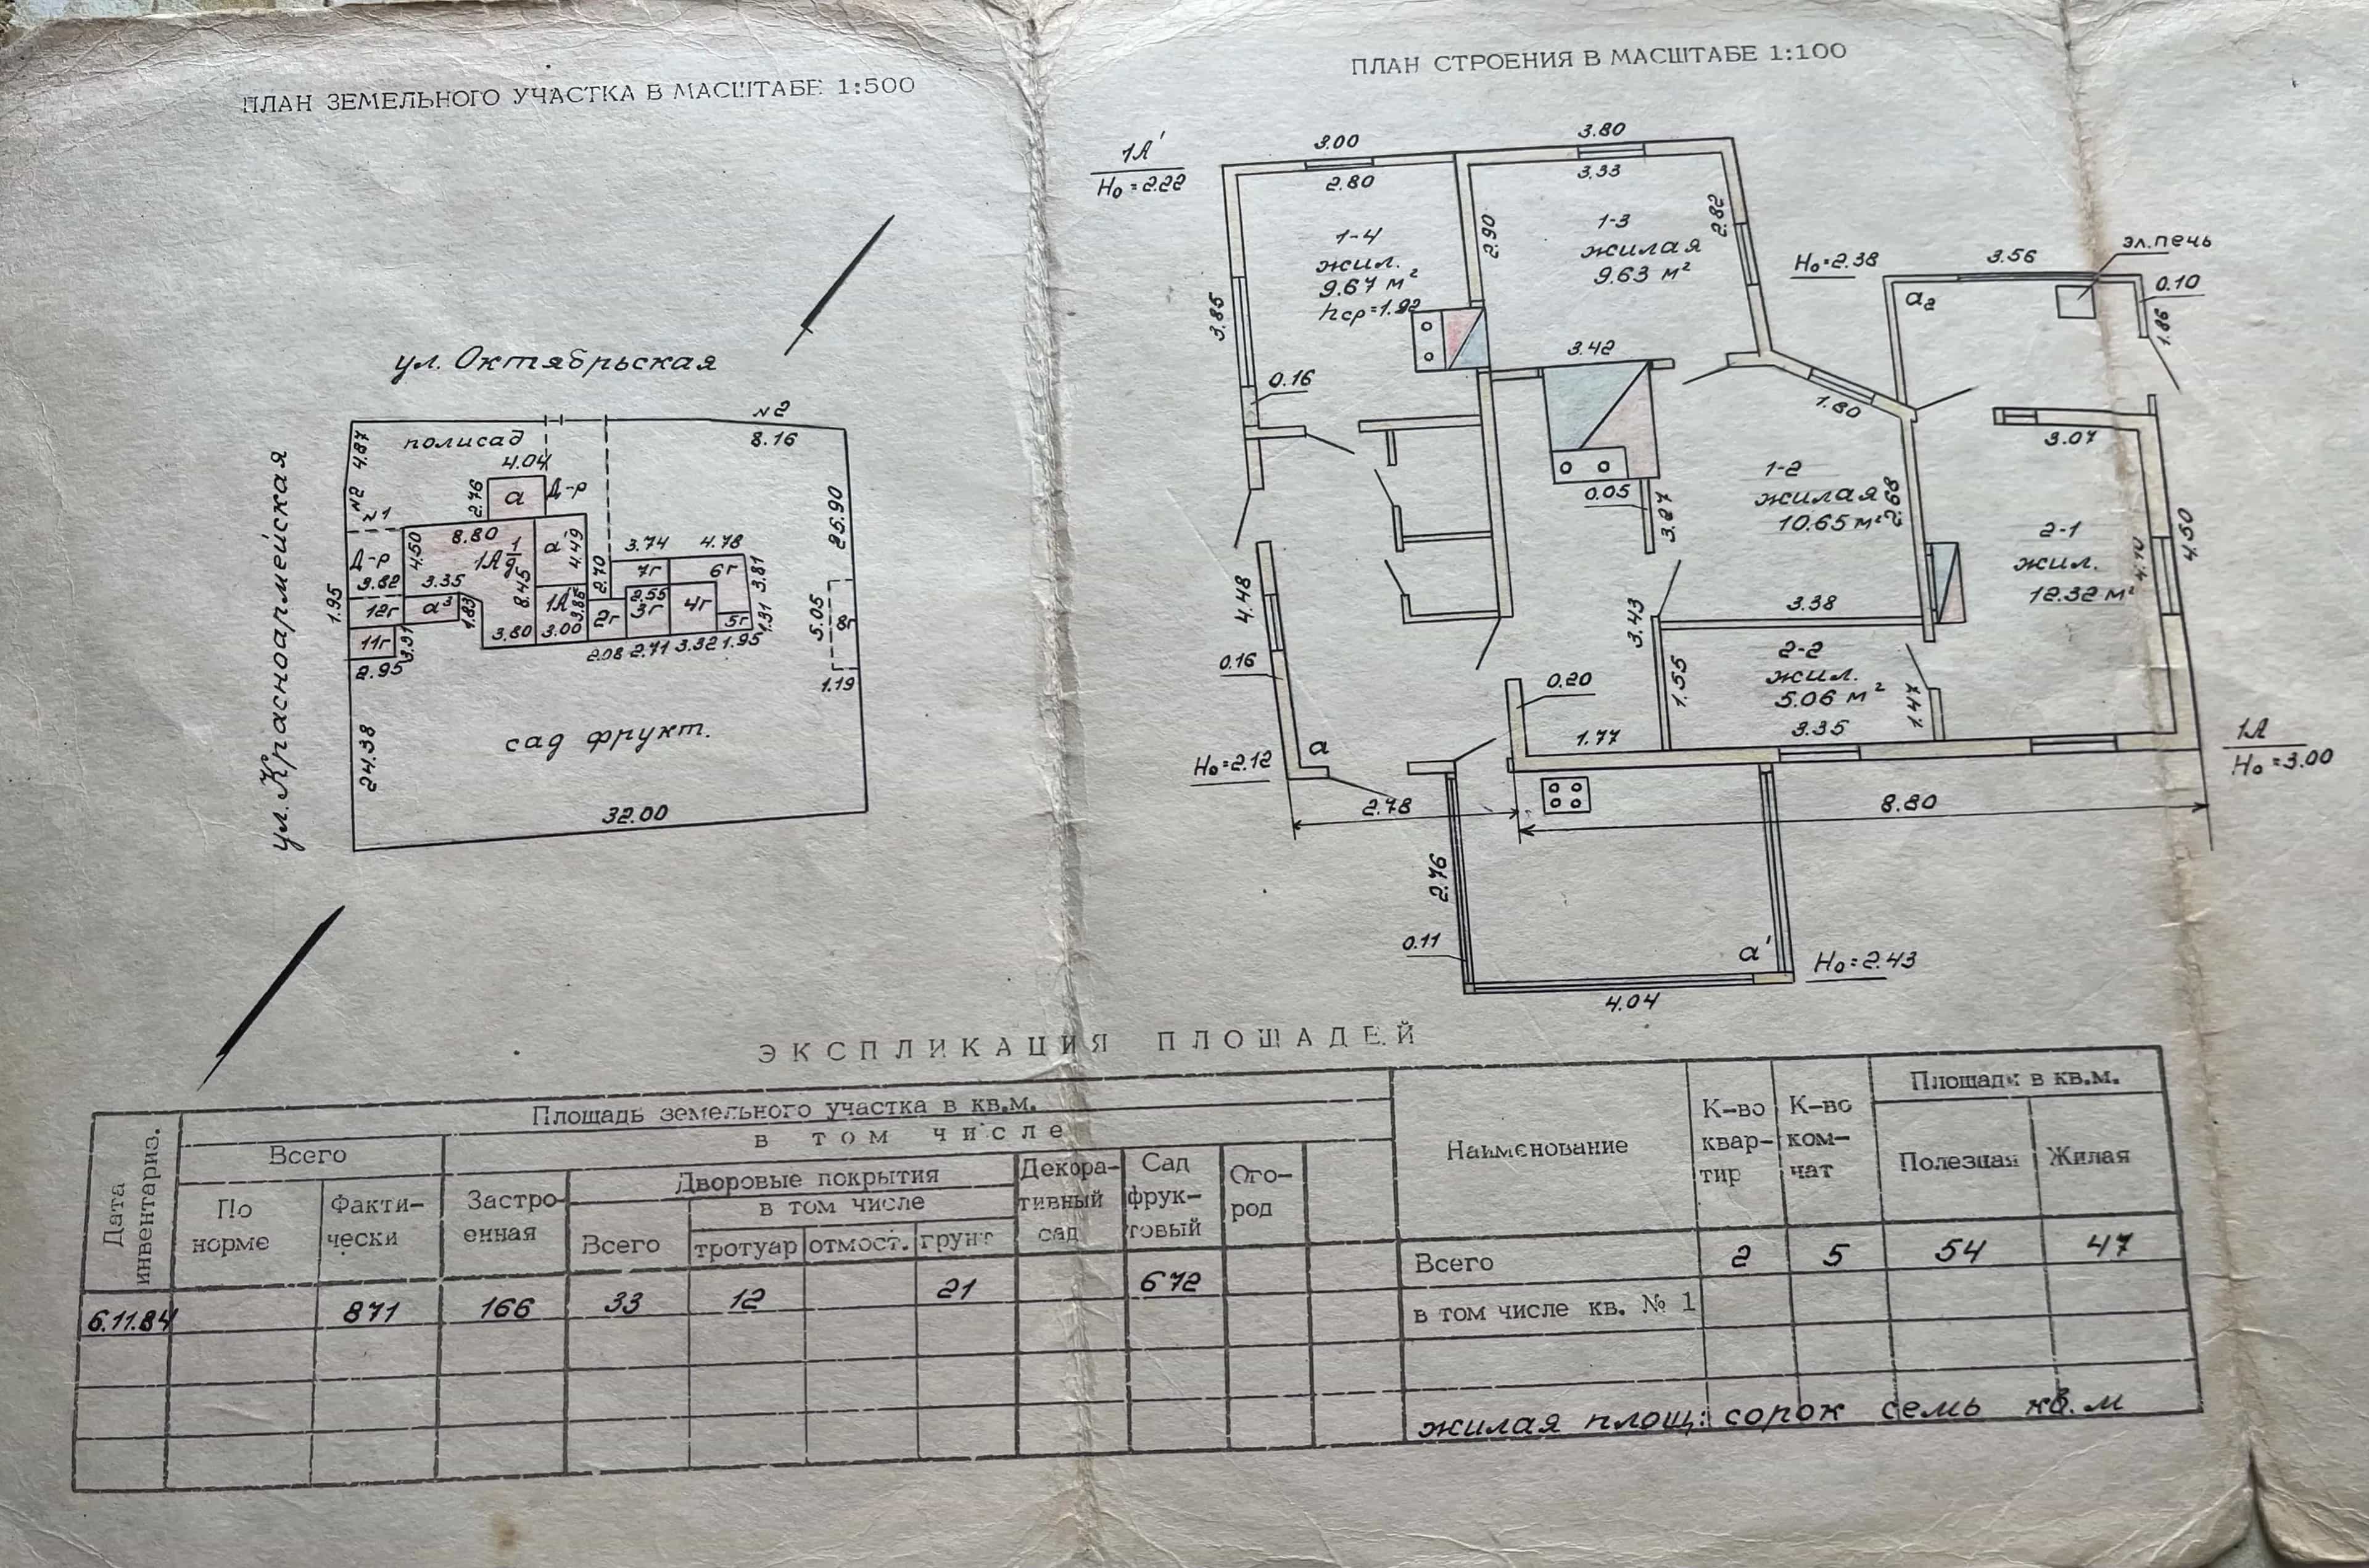 ПЛАН ЗЕМЕЛЬНОГО УЧАСТКА В МАСШТАБЕ 1:500
ул. Октябрьская
ул. Красноармейская
N2
8.16
полисад
4.87
N2
4.04
2.76
а
Д-р
N1
8.80
а'
4.49
25.90
Д-р
4.50
1А
2.70
3.74
4.78
7г
6г
3.81
3.82
3.35
8.45
1.95
12г
а³
1.83
3.85
2.55
2г
3г
4г
5г
1.31
5.05
8г
11г
3.31
3.80
3.00
2.95
2.08
2.71
3.32
1.95
1.19
24.38
сад фрукт.
32.00
ПЛАН СТРОЕНИЯ В МАСШТАБЕ 1:100
1А'
Н₀=2.22
3.00
2.80
3.80
3.33
1-4
жил.
9.67 м²
hср=1.92
3.85
2.90
1-3
жилая
9.63 м²
2.82
Н₀=2.38
3.56
эл.печь
а₂
0.10
1.86
0.16
3.42
1.80
3.07
0.05
3.27
1-2
жилая
10.65 м²
2.68
2-1
жил.
12.32 м²
4.10
4.50
4.48
3.43
3.38
0.16
0.20
1.55
2-2
жил.
5.06 м²
1.47
3.35
1.77
Н₀=2.12
а
2.78
8.80
1А
Н₀=3.00
2.76
0.11
а'
Н₀=2.43
4.04
ЭКСПЛИКАЦИЯ ПЛОЩАДЕЙ
Дата инвентариз.
Площадь земельного участка в кв.м.
Всего
в том числе
По норме
Факти-чески
Застро-енная
Дворовые покрытия
в том числе
Всего
тротуар
отмост.
грунт
Декора-тивный сад
Сад фрук-товый
Ого-род
Наименование
К-во квар-тир
К-во ком-нат
Площади в кв.м.
Полезная
Жилая
6.11.84 871 166 33 12 21 672
Всего 2 5 54 47
в том числе кв. № 1
жилая площ: сорок семь кв.м